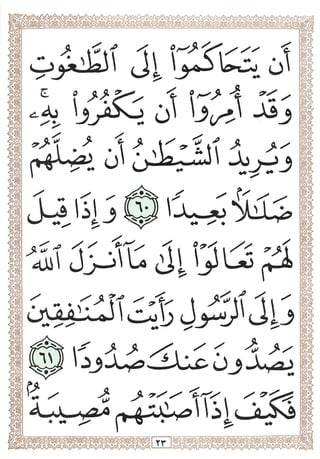 أَن يَتَحَاكَمُوٓا۟ إِلَى ٱلطَّـٰغُوتِ
وَقَدْ أُمِرُوٓا۟ أَن يَكْفُرُوا۟ بِهِۦۚ
وَيُرِيدُ ٱلشَّيْطَـٰنُ أَن يُضِلَّهُمْ
ضَلَـٰلًۢا بَعِيدًا ٦٠ وَإِذَا قِيلَ
لَهُمْ تَعَالَوْا۟ إِلَىٰ مَآ أَنزَلَ ٱللَّهُ
وَإِلَى ٱلرَّسُولِ رَأَيْتَ ٱلْمُنَـٰفِقِينَ
يَصُدُّونَ عَنكَ صُدُودًا ٦١
فَكَيْفَ إِذَآ أَصَـٰبَتْهُم مُّصِيبَةٌۢ
٢٣